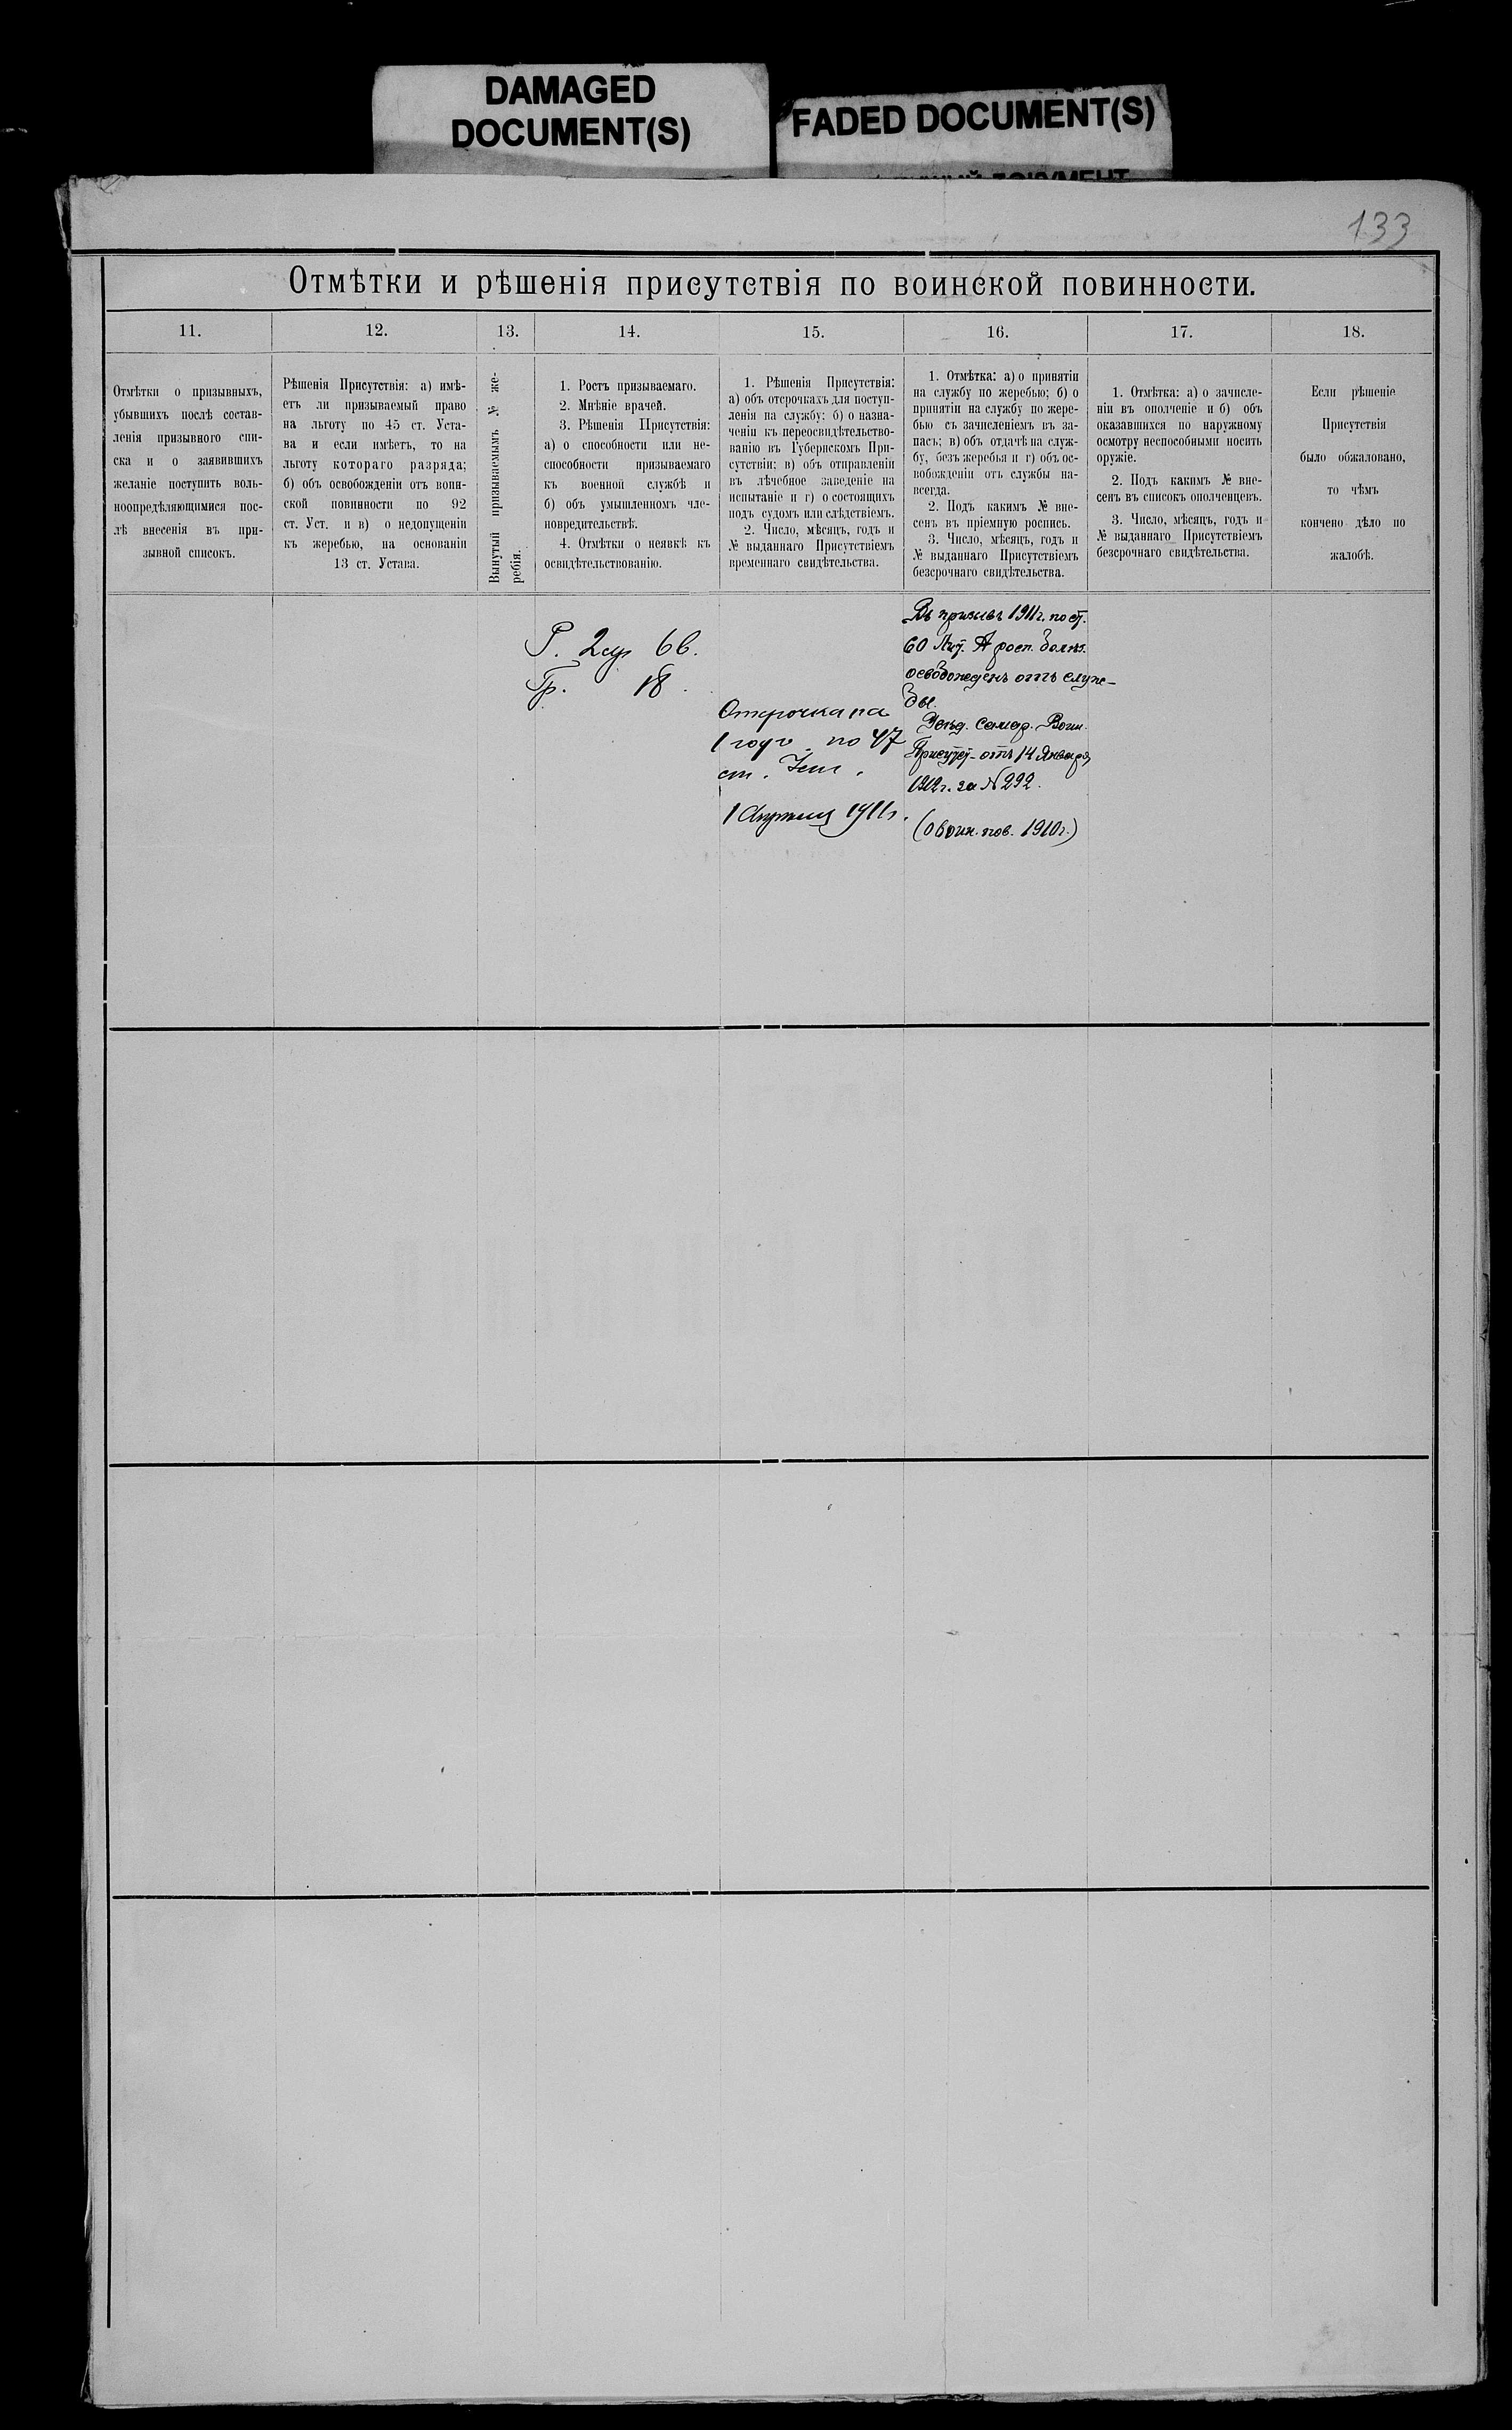 DAMAGED
DOCUMENT(S)
FADED DOCUMENT(S)
133
Отмѣтки и рѣшенія присутствія по воинской повинности.
11.
12.
13.
14.
15.
16.
17.
18.
Отмѣтки о призывныхъ,
убывшихъ послѣ состав-
ленія призывного спи-
ска и о заявившихъ
желаніе поступить воль-
ноопредѣляющимися пос-
лѣ внесенія въ при-
зывной списокъ.
Рѣшенія Присутствія: а) имѣ-
етъ ли призываемый право
на льготу по 45 ст. Уста-
ва и если имѣетъ, то на
льготу котораго разряда;
б) объ освобожденіи отъ воин-
ской повинности по 92
ст. Уст. и в) о недопущеніи
къ жеребью, на основаніи
13 ст. Устава.
Вынутый призываемымъ № же-
ребія.
1. Ростъ призываемаго.
2. Мнѣніе врачей.
3. Рѣшенія Присутствія:
а) о способности или не-
способности призываемаго
къ военной службѣ и
б) объ умышленномъ чле-
новредительствѣ.
4. Отмѣтки о неявкѣ къ
освидѣтельствованію.
1. Рѣшенія Присутствія:
а) объ отсрочкахъ для поступ-
ленія на службу; б) о назна-
ченіи къ переосвидѣтельство-
ванію въ Губернскомъ При-
сутствіи; в) объ отправленіи
въ лѣчебное заведеніе на
испытаніе и г) о состоящихъ
подъ судомъ или слѣдствіемъ.
2. Число, мѣсяцъ, годъ и
№ выданнаго Присутствіемъ
временнаго свидѣтельства.
1. Отмѣтка: а) о принятіи
на службу по жеребью; б) о
принятіи на службу по жере-
бью съ зачисленіемъ въ за-
пасъ; в) объ отдачѣ на служ-
бу, безъ жеребья и г) объ ос-
вобожденіи отъ службы на-
всегда.
2. Подъ какимъ № вне-
сенъ въ пріемную роспись.
3. Число, мѣсяцъ, годъ и
№ выданнаго Присутствіемъ
безсрочнаго свидѣтельства.
1. Отмѣтка: а) о зачисле-
ніи въ ополченіе и б) объ
оказавшихся по наружному
осмотру неспособными носить
оружіе.
2. Подъ какимъ № вне-
сенъ въ списокъ ополченцевъ.
3. Число, мѣсяцъ, годъ и
№ выданнаго Присутствіемъ
безсрочнаго свидѣтельства.
Если рѣшеніе
Присутствія
было обжаловано,
то чѣмъ
кончено дѣло по
жалобѣ.
Р. 2 6 в.
Гр. 18.
Отсрочка на
1 годъ по 47
ст. Уст.
1 Апрѣля 1911 г.
Въ призывъ 1911 г. по ст.
60 Лит. А росп. болѣз.
освобожденъ отъ служ-
бы.
Увѣд. Самар. Воин.
Присутст. отъ 14 Января
1912 г. за № 292.
(о воин. пов. 1910 г.)